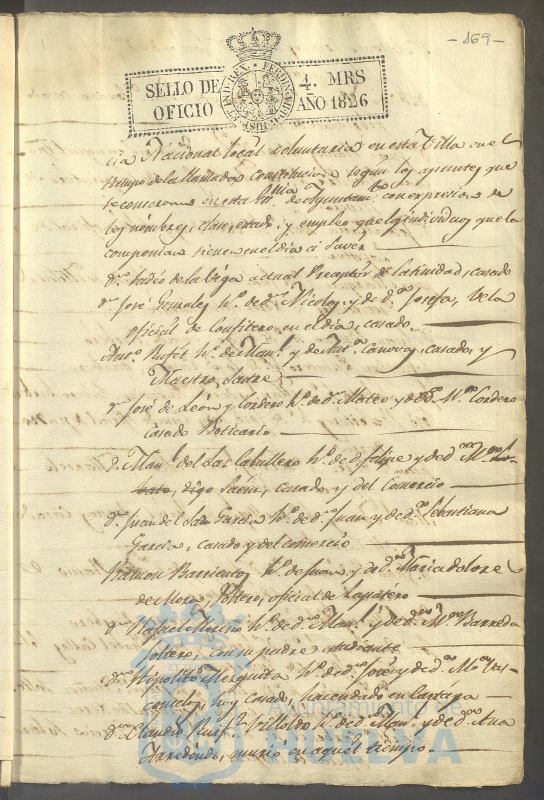 - 169 -
SELLO DE 4. MRS
OFICIO AÑO 1826
cia Nacional local voluntaria en esta Villa en el
tiempo de la llamada Constitucion segun los apuntes que
se conservan en esta de Ayuntam.to con expresion de
los nombres, clase, estado, y empleo que los individuos que la
componian tienen en el dia a saver
d.n Tadeo de la Vega actual Preceptor de latinidad, casado
d.n José Gonzalez h.o de d.n Nicolas y de d.a Josefa, Vela
oficial de Confitero en el dia, casado
Ant.o Rufet h.o de Man.l y de Ant.a Canovas, casado, y
Maestro Sastre
d.n José de León y Cordero h.o de d.n Mateo y de d.a M.a Cordero
casado Boticario
d. Man.l del Saz Caballero h.o de d. Felipe y de d.a M.a
digo Saénz, casado y del Comercio
d.n Juan del Saz Garcia h.o de d.n Juan y de d.a Sebastiana
Garcia, casado y del comercio
Ramon Barrientos h.o de Juan y de d.a Maria dolores
de Mora, soltero, oficial de Zapatero
d.n Rafael Moreno h.o de d.n Man.l y de d.a M.a Barreda
soltero, con su padre estudiante
d.n Hipolito Mezquita h.o de d.n José y de d.a M.a Vas-
concelos, hoy casado, hacendado en Cartaya
d.n Claudio Villoldo h.o de d.n Man.l y de d.a Ana
Arredondo, murio en aquel tiempo
Ayuntamiento de
HUELVA